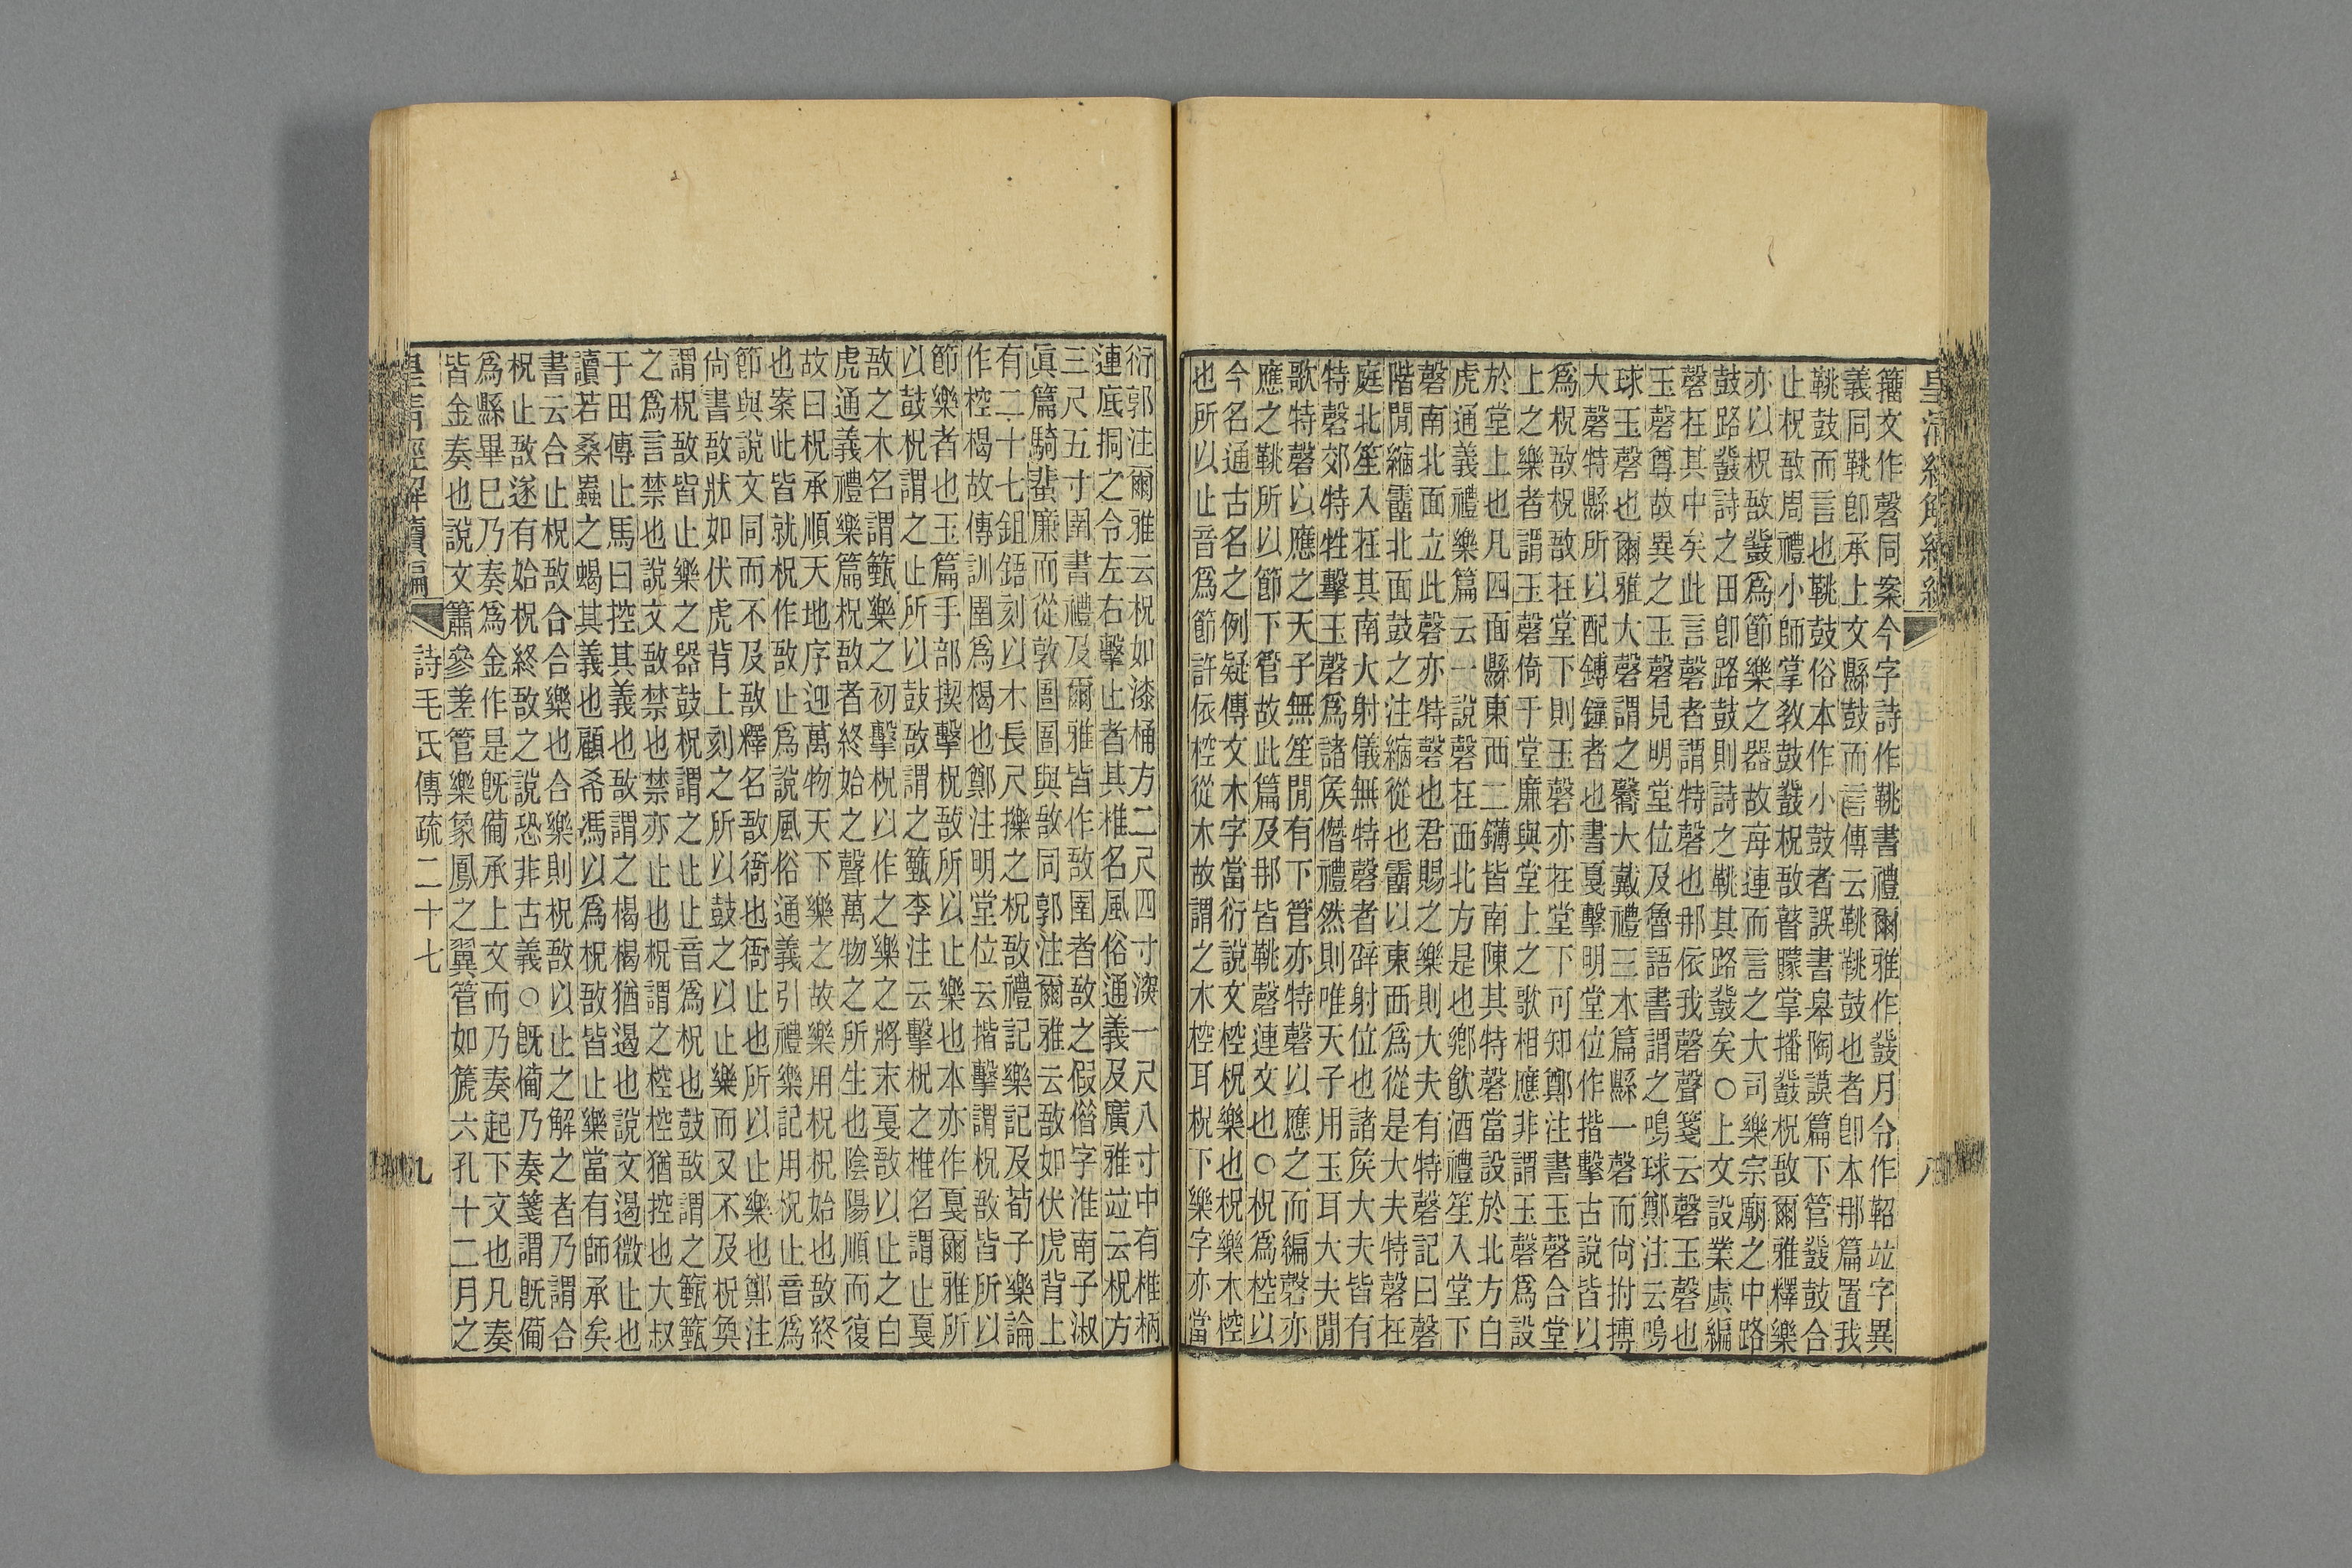 皇清經解續編
八
籒文作磬同案今字詩作鞉書禮爾雅作鼗月令作鞀竝字異
義同鞉卽承上文縣鼓而言傳云鞉鞉鼓也者卽本那篇置我
鞉鼓而言也鞉鼓俗本作小鼓者誤書皋陶謨篇下管鼗鼓合
止柷敔周禮小師掌敎鼓鼗柷敔瞽矇掌播鼗柷敔爾雅釋樂
亦以柷敔鼗爲節樂之器故每連而言之大司樂宗廟之中路
鼓路鼗詩之田卽路鼓則詩之鞉其路鼗矣○上文設業虡編
磬在其中矣此言磬者謂特磬也那依我磬聲箋云磬玉磬也
玉磬尊故異之玉磬見明堂位及魯語書謂之鳴球鄭注云鳴
球玉磬也爾雅大磬謂之毊大戴禮三本篇縣一磬而尙拊搏
大磬特縣所以配鎛鐘者也書戛擊明堂位作揩擊古說皆以
爲柷敔柷敔在堂下則玉磬亦在堂下可知鄭注書玉磬合堂
上之樂者謂玉磬倚于堂廉與堂上之歌相應非謂玉磬爲設
於堂上也凡四面縣東西二鑮皆南陳其特磬當設於北方白
虎通義禮樂篇云一說磬在西北方是也鄉飮酒禮笙入堂下
磬南北面立此磬亦特磬也君賜之樂則大夫有特磬記曰磬
階閒縮霤北面鼓之注縮從也霤以東西爲從是大夫特磬在
庭北笙入在其南大射儀無特磬者辟射位也諸矦大夫皆有
特磬郊特牲擊玉磬爲諸矦僭禮然則唯天子用玉耳大夫閒
歌特磬以應之天子無笙閒有下管亦特磬以應之而編磬亦
應之鞉所以節下管故此篇及那皆鞉磬連文也○柷爲椌以
今名通古名之例疑傳文木字當衍說文椌柷樂也柷樂木椌
也所以止音爲節許依椌從木故謂之木椌耳柷下樂字亦當
衍郭注爾雅云柷如漆桶方二尺四寸深一尺八寸中有椎柄
連底挏之令左右擊止者其椎名風俗通義及廣雅竝云柷方
三尺五寸圉書禮及爾雅皆作敔圉者敔之假借字淮南子淑
眞篇騎蜚廉而從敦圄圄與敔同郭注爾雅云敔如伏虎背上
有二十七鉏鋙刻以木長尺擽之柷敔禮記樂記及荀子樂論
作椌楬故傳訓圉爲楬也鄭注明堂位云揩擊謂柷敔皆所以
節樂者也玉篇手部揳擊柷敔所以止樂也本亦作戛爾雅所
以鼓柷謂之止所以鼓敔謂之籈李注云擊柷之椎名謂止戛
敔之木名謂籈樂之初擊柷以作之樂之將末戛敔以止之白
虎通義禮樂篇柷敔者終始之聲萬物之所生也陰陽順而復
故曰柷承順天地序迎萬物天下樂之故樂用柷柷始也敔終
也案此皆就柷作敔止爲說風俗通義引禮樂記用柷止音爲
節與說文同而不及敔釋名敔衙也衙止也所以止樂也鄭注
尙書敔狀如伏虎背上刻之所以鼓之以止樂而又不及柷奐
謂柷敔皆止樂之器鼓柷謂之止止音爲柷也鼓敔謂之籈籈
之爲言禁也說文敔禁也禁亦止也柷謂之椌椌猶控也大叔
于田傳止馬曰控其義也敔謂之楬楬猶遏也說文遏微止也
讀若桑蟲之蝎其義也顧希馮以爲柷敔皆止樂當有師承矣
書云合止柷敔合合樂也合樂則柷敔以止之解之者乃謂合
柷止敔遂有始柷終敔之說恐非古義○旣備乃奏箋謂旣備
爲縣畢巳乃奏爲金作是旣備承上文而乃奏起下文也凡奏
皆金奏也說文簫參差管樂象鳳之翼管如篪六孔十二月之
皇淸經解續編
詩毛氏傳疏二十七
九